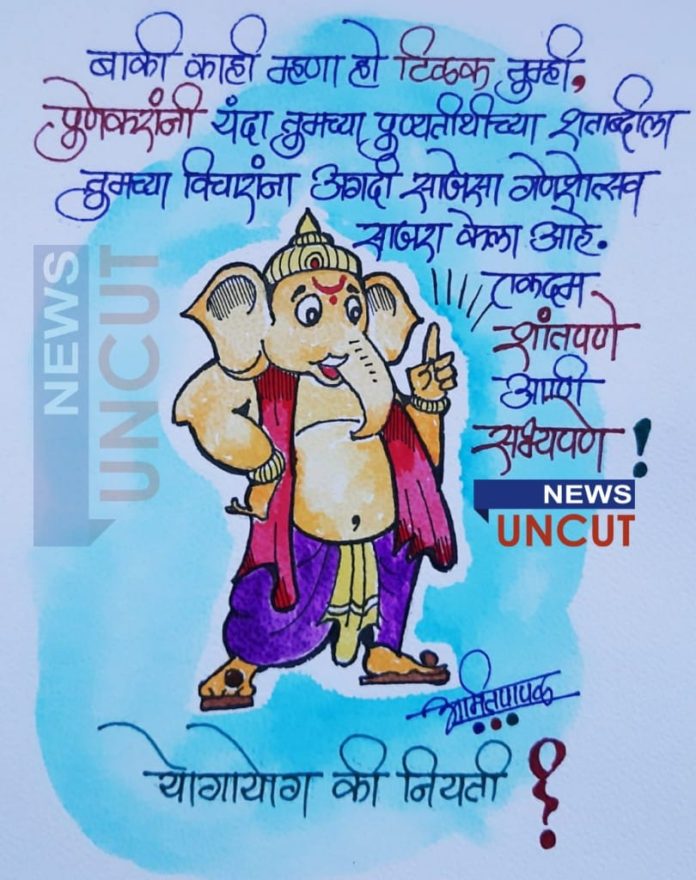 बाकी काही म्हणा हो टिळक तुम्ही,
पुणेकरांनी यंदा तुमच्या पुण्यतीथीच्या शताब्दीला
तुमच्या विचारांना अगदी साजेसा गणेशोत्सव
साजरा केला आहे.
एकदम
शांतपणे
आणि
सभ्यपणे !
NEWS
UNCUT
NEWS
UNCUT
अमितपापळ
योगायोग की नियती ?